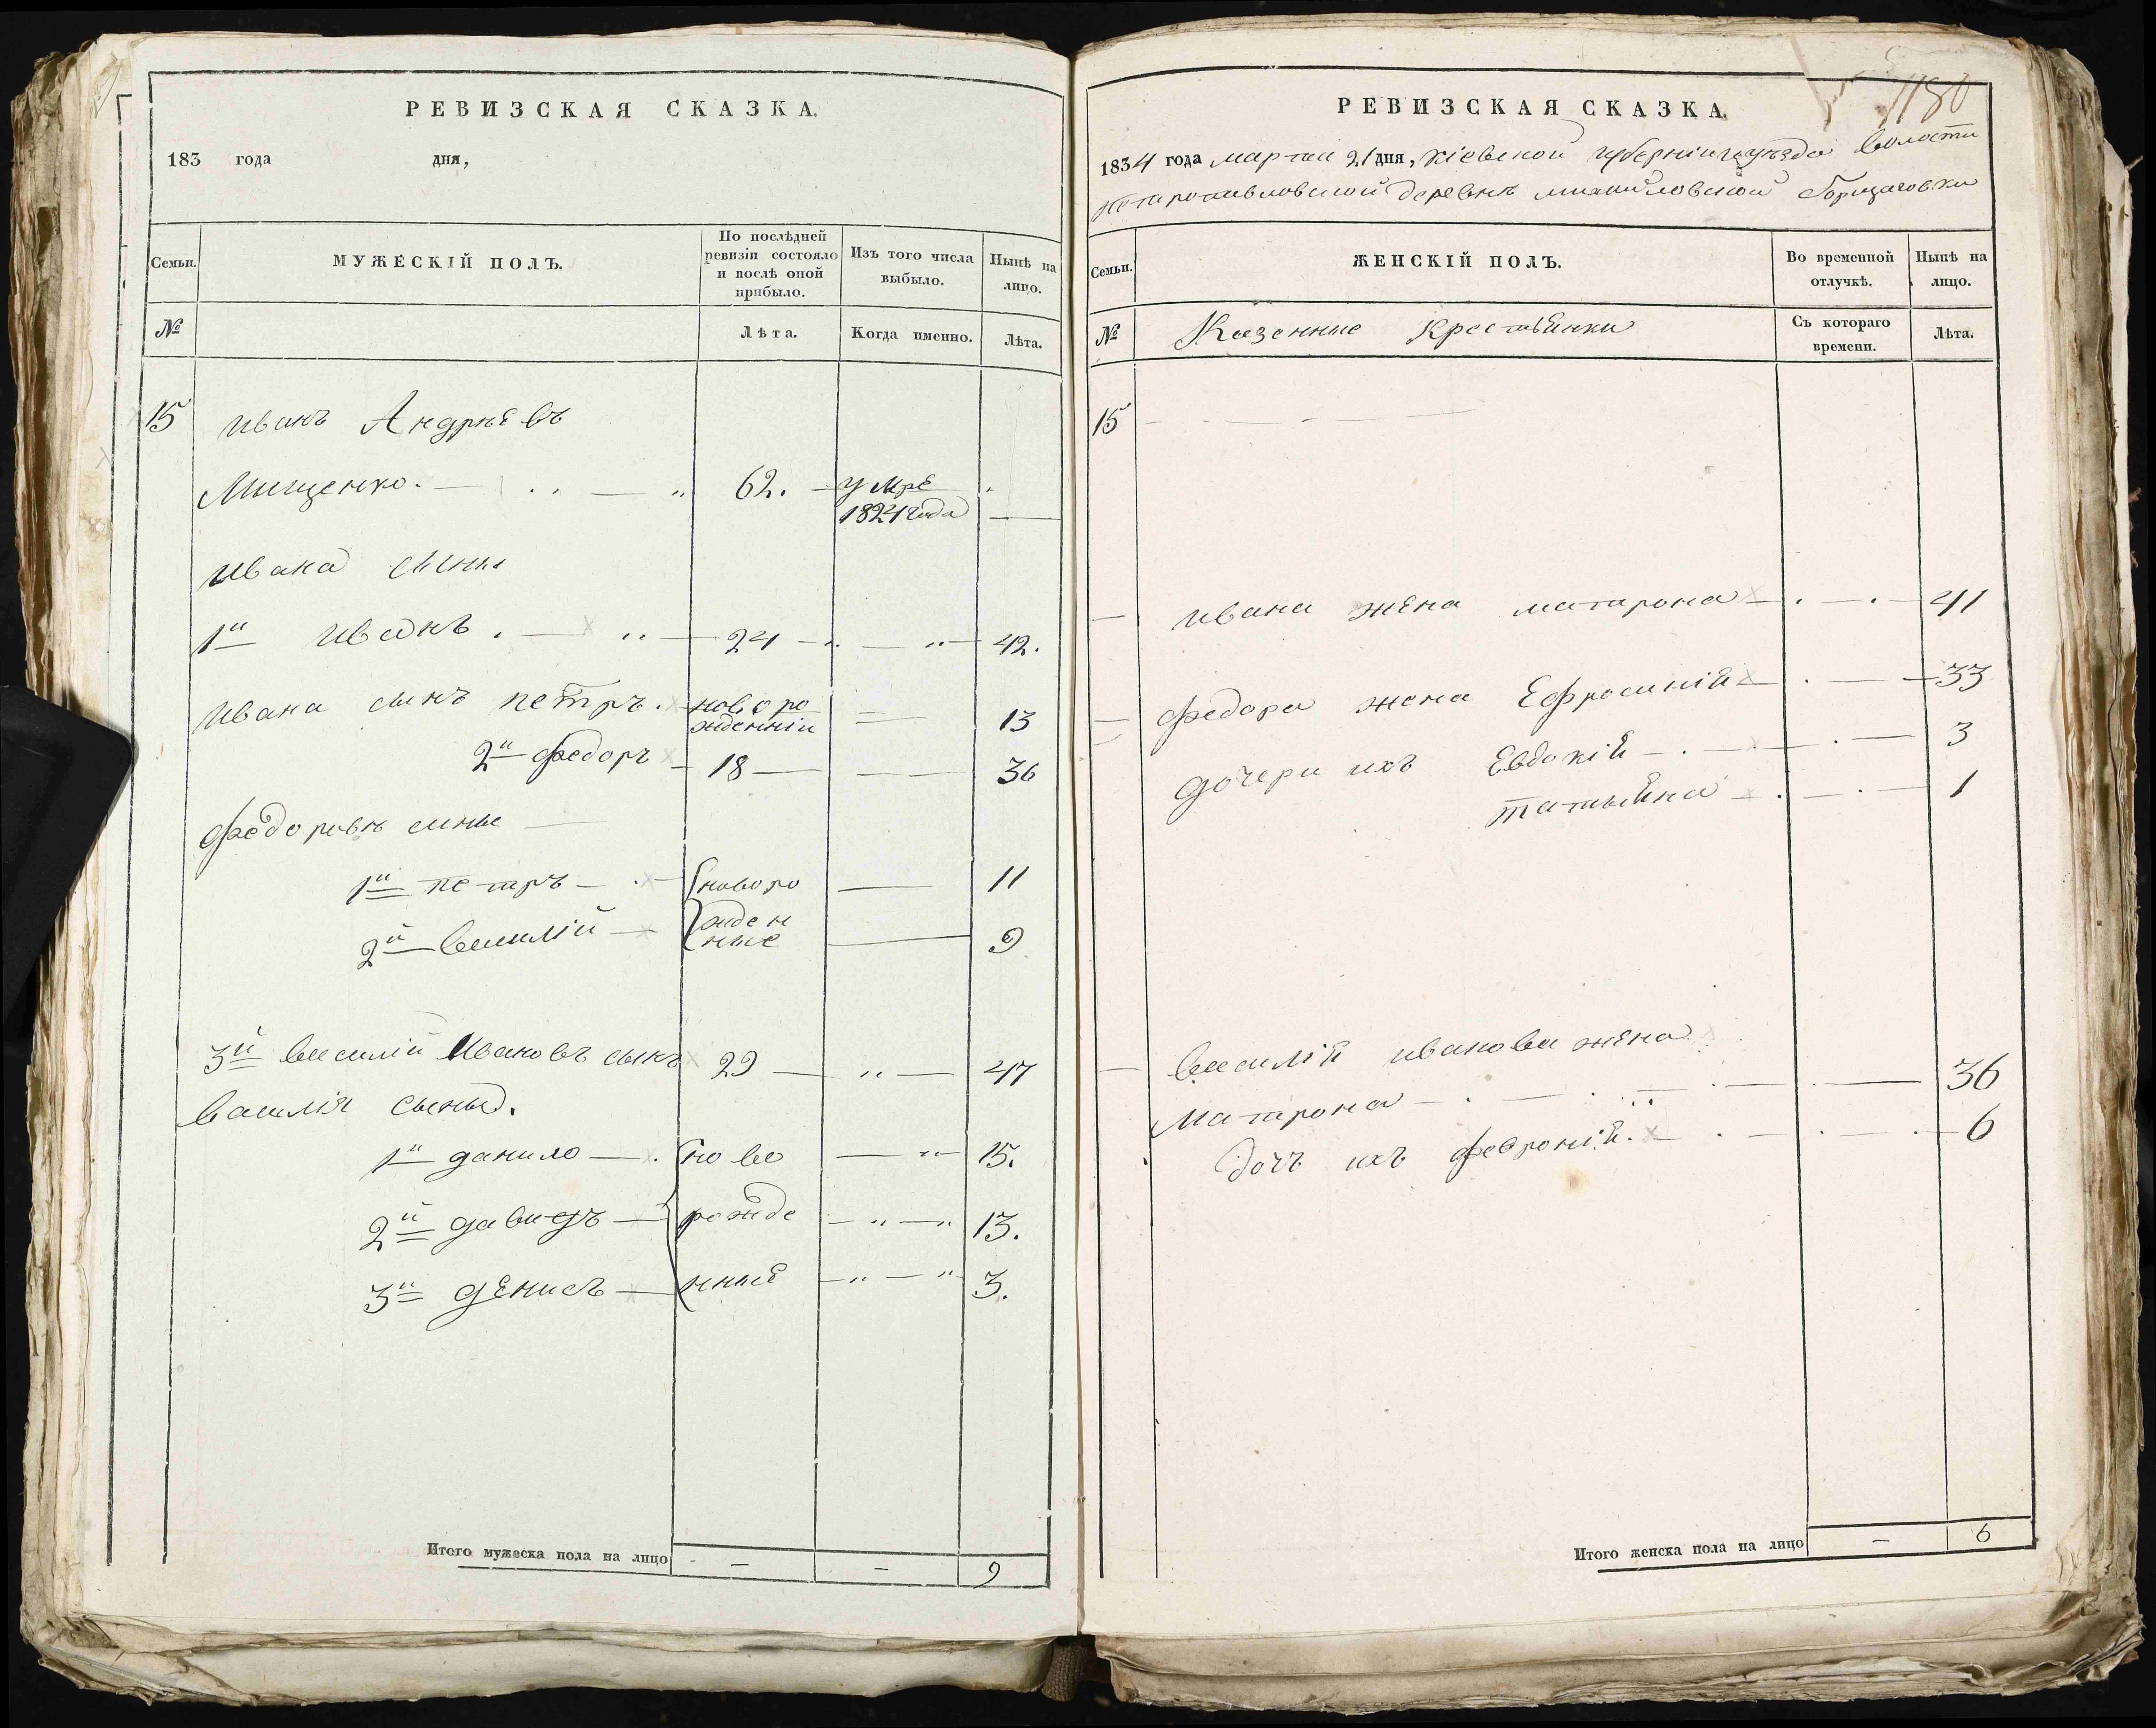 РЕВИЗСКАЯ СКАЗКА.
183 года дня,
Семьи.
МУЖЕСКІЙ ПОЛЪ.
По послѣдней ревизіи состояло и послѣ оной прибыло.
Изъ того числа выбыло.
Нынѣ на лицо.
№
Лѣта.
Когда именно.
Лѣта.
15 Иванъ Андрѣевъ
Мищенко. 62. умре
1824 года
Ивана сыны
1й Иванъ 24 42.
Ивана сынъ петръ. новоро
жденній 13
2й федоръ 18 36
федоровы сыны
1й петръ новоро 11
2й василій жден
ные 9
3й василій Ивановъ сынъ 29 47
василія сыны.
1й данило ново 15.
2й давидъ рожде 13.
3й денисъ нные 3.
Итого мужеска пола на лицо - - 9
1180
РЕВИЗСКАЯ СКАЗКА.
1834 года мартаи 21 дня, кіевской губерніи и уѣзда волости
петропавловской деревнѣ михайловской борщаговки
Семьи.
ЖЕНСКІЙ ПОЛЪ.
Во временной отлучкѣ.
Нынѣ на лицо.
№
Казенные Крестьянки
Съ котораго времени.
Лѣта.
15
Ивана жена матрона 41
федора жена Ефросинія 33
дочери ихъ Евдокія 3
татьяна 1
василія иванова жена
Матрона 36
дочъ ихъ февронія. 6
Итого женска пола на лицо - 6